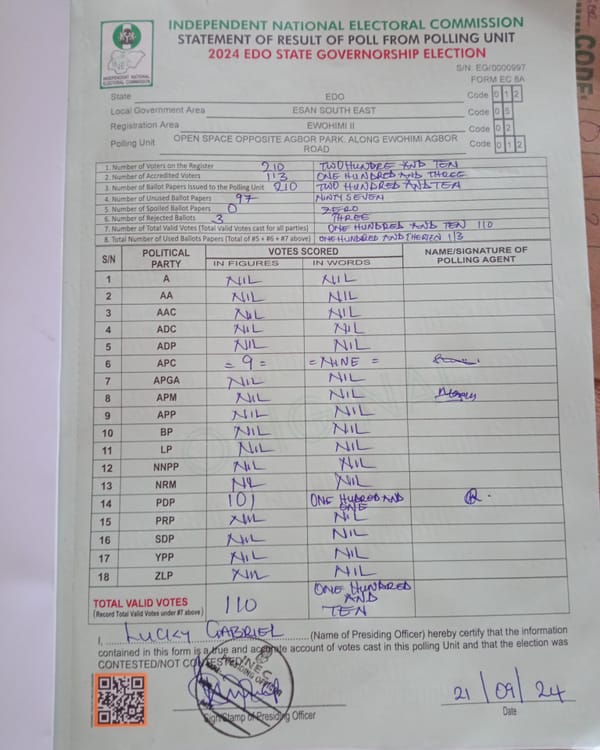 INDEPENDENT NATIONAL ELECTORAL COMMISSION
STATEMENT OF RESULT OF POLL FROM POLLING UNIT
2024 EDO STATE GOVERNORSHIP ELECTION
INDEPENDENT NATIONAL ELECTORAL COMMISSION
S/N: EG/0000997
FORM EC 8A
State EDO Code 0 1 2
Local Government Area ESAN SOUTH EAST Code 0 5
Registration Area EWOHIMI II Code 0 2
Polling Unit OPEN SPACE OPPOSITE AGBOR PARK. ALONG EWOHIMI AGBOR ROAD Code 0 1 2
1. Number of Voters on the Register 210 TWO HUNDRE AND TEN
2. Number of Accredited Voters 113 ONE HUNDRED AND THREE
3. Number of Ballot Papers Issued to the Polling Unit 210 TWO HUNDRED AND TEN
4. Number of Unused Ballot Papers 97 NINTY SEVEN
5. Number of Spoiled Ballot Papers 0 ZERO
6. Number of Rejected Ballots 3 THREE
7. Number of Total Valid Votes (Total Valid Votes cast for all parties) ONE HUNDRED AND TEN 110
8. Total Number of Used Ballots Papers (Total of #5 + #6 + #7 above) ONE HUNDRED AND 113
S/N POLITICAL PARTY VOTES SCORED NAME/SIGNATURE OF POLLING AGENT
IN FIGURES IN WORDS
1 A NIL NIL
2 AA NIL NIL
3 AAC NIL NIL
4 ADC NIL NIL
5 ADP NIL NIL
6 APC = 9 = = NINE =
7 APGA NIL NIL
8 APM NIL NIL
9 APP NIL NIL
10 BP NIL NIL
11 LP NIL NIL
12 NNPP NIL NIL
13 NRM NIL NIL
14 PDP 101 ONE HUDRED AND ONE
15 PRP NIL NIL
16 SDP NIL NIL
17 YPP NIL NIL
18 ZLP NIL NIL
TOTAL VALID VOTES 110 ONE HUNDRED AND TEN
(Record Total Valid Votes under #7 above)
I, LUCKY GABRIEL (Name of Presiding Officer) hereby certify that the information
contained in this form is a true and accurate account of votes cast in this polling Unit and that the election was
CONTESTED/NOT CONTESTED
INEC
PRESIDING OFFICER
Sign/Stamp of Presiding Officer
21/09/24
Date
CODE